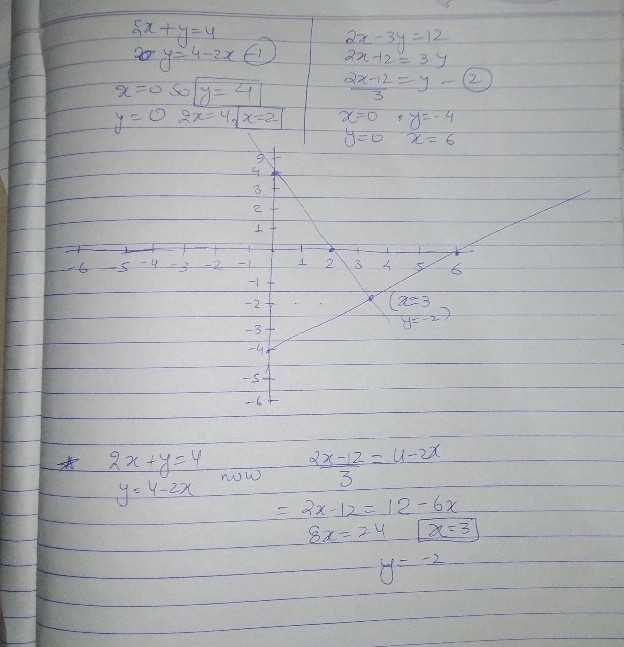 2x+y=4
y=4-2x ①
x=0 So y=4
y=0 2x=4, x=2
2x-3y=12
2x-12=3y
2x-12/3=y - ②
x=0 , y=-4
y=0 x=6
5
4
3
2
1
-6 -5 -4 -3 -2 -1 1 2 3 4 5 6
-1
-2
(x=3
y=-2)
-3
-4
-5
-6
* 2x+y=4
y=4-2x now
2x-12/3 = 4-2x
= 2x-12=12-6x
8x=24 x=3
y=-2